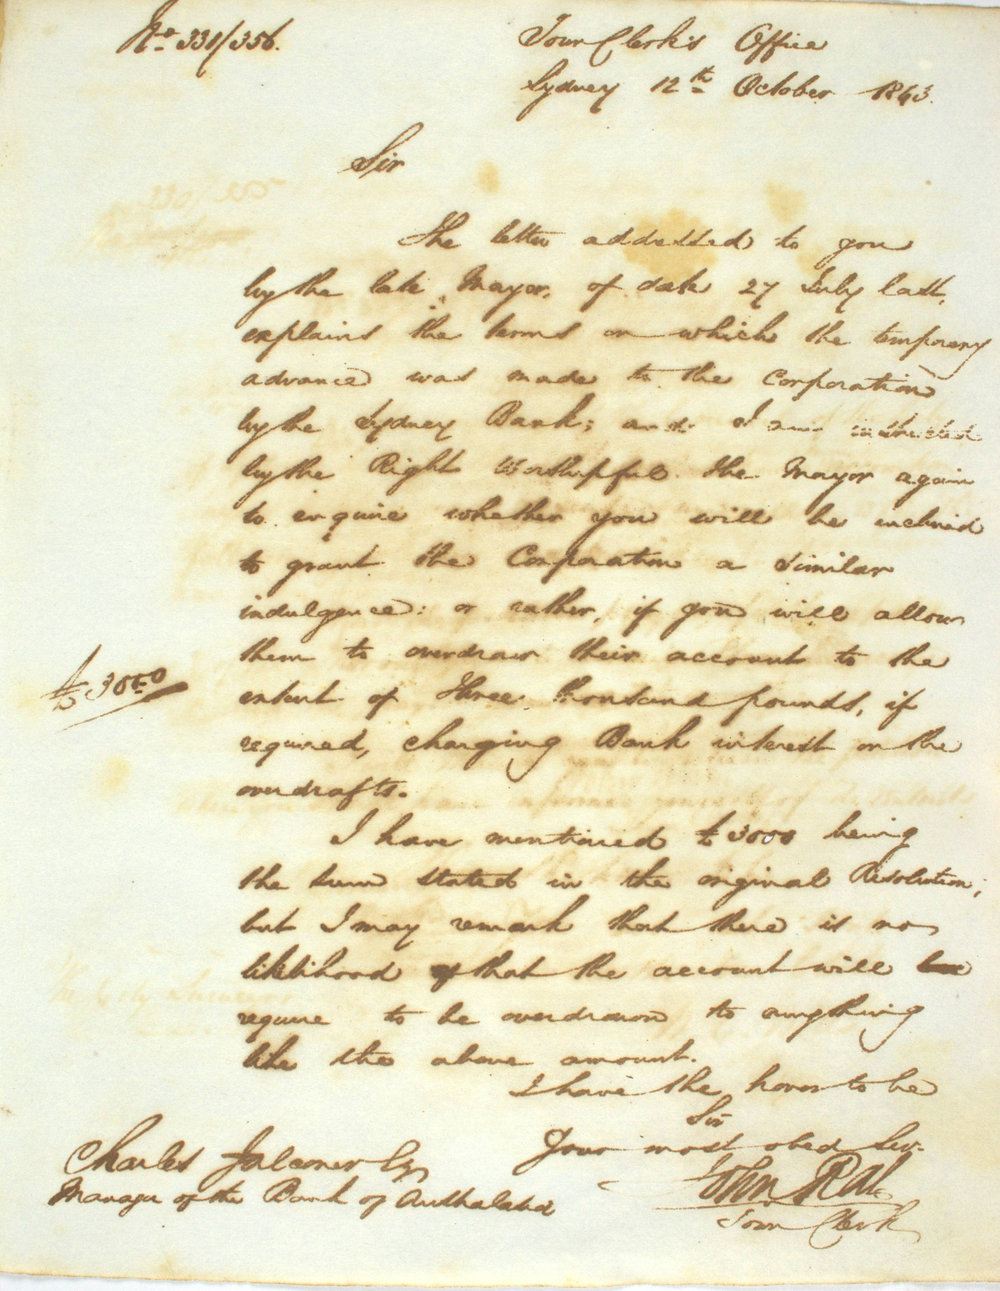 No. 331/356.
Town Clerk's Office
Sydney 12th October 1843.
Sir
The letter addressed to you
by the late Mayor, of date 27 July last,
explains the terms on which the temporary
advance was made to the Corporation
by the Sydney Bank; and I am instructed
by the Right Worshipful the Mayor again
to enquire whether you will be inclined
to grant the Corporation a similar
indulgence: or rather, if you will allow
them to overdraw their account to the
£3000
extent of Three thousand pounds, if
required, charging Bank interest on the
overdrafts.
I have mentioned £3000 being
the sum stated in the original Resolution;
but I may remark that there is no
likelihood that the account will
require to be overdrawn to anything
like the above amount.
I have the honor to be
Sir
Your most obed Ser.
John Rae
Town Clerk
Charles Falconer Esq
Manager of the Bank of Australasia